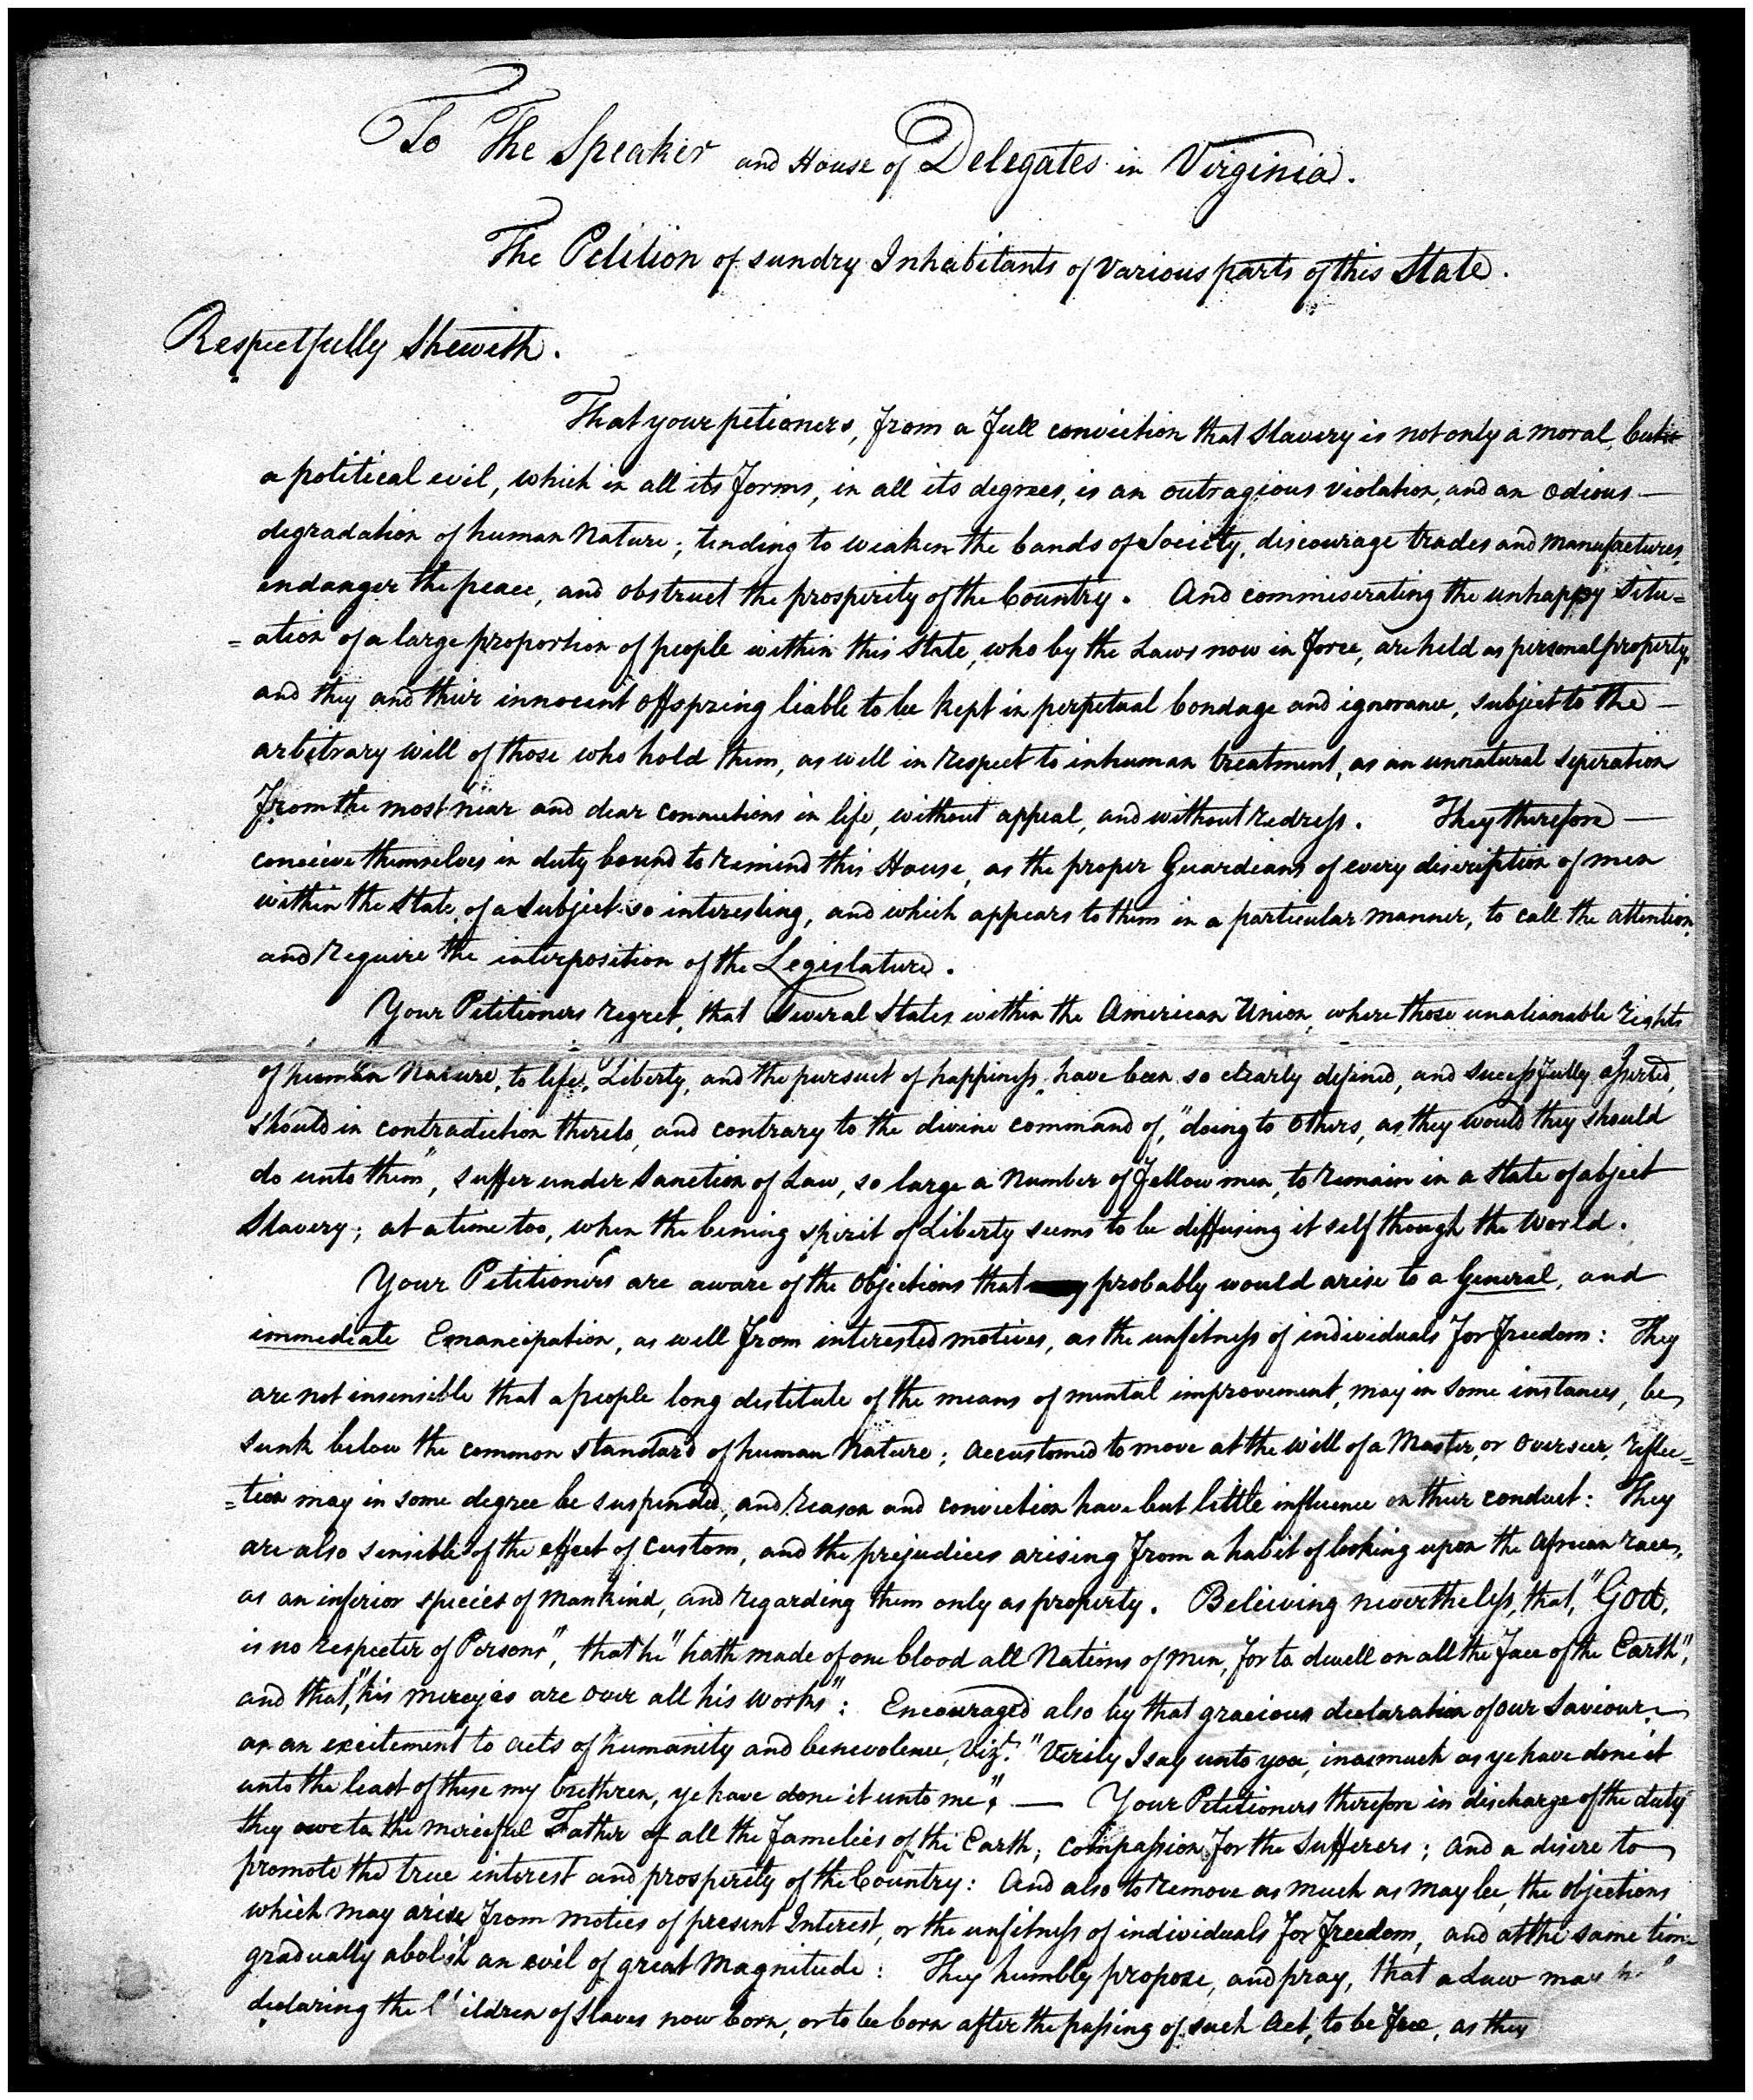 To The Speaker and House of Delegates in Virginia.
The Petition of sundry Inhabitants of various parts of this State.
Respectfully Sheweth.
That your petioners, from a full conviction that slavery is not only a moral, but
a political evil, which in all its forms, in all its degrees, is an outragious violation, and an odious —
degradation of human Nature; tending to weaken the bands of Society, discourage trades and manufactures,
endanger the peace, and obstruct the prosperity of the Country. And commiserating the unhappy situ=
=ation of a large proportion of people within this State, who by the Laws now in force, are held as personal property,
and they and their innocent offspring liable to be kept in perpetual bondage and ignorance, subject to the —
arbitrary will of those who hold them, as well in respect to inhuman treatment, as an unnatural seperation
from the most near and dear connections in life, without appeal, and without redress. They therefore —
conceive themselves in duty bound to remind this House, as the proper Guardians of every discription of men
within the State, of a subject so interesting, and which appears to them in a particular manner, to call the attention,
and require the interposition of the Legislature.
Your Petitioners regret, that Several States within the American Union, where those unalianable rights
of human Nature, to life, Liberty, and the pursuit of happiness, have been so clearly defined, and successfully asserted,
should in contradiction thereto, and contrary to the divine command of, "doing to others, as they would they should
do unto them", suffer under Sanction of Law, so large a Number of Fellow men, to remain in a State of abject
Slavery; at a time too, when the bening spirit of Liberty seems to be diffusing it self though the World.
Your Petitioners are aware of the Objections that probably would arise to a General, and
immediate Emancipation, as well from interested motives, as the unfitness of individuals for freedom: They
are not insensible that a people long destitute of the means of mental improvement, may in some instances, be
sunk below the common standard of human Nature; accustomed to move at the will of a Master, or overseer, reflec=
=tion may in some degree be suspended, and reason and conviction have but little influence on their conduct: They
are also sensible of the effect of custom, and the prejudices arising from a habit of looking upon the African race,
as an inferior species of mankind, and regarding them only as property. Beleiving nevertheless, that, "God,
is no respecter of Persons", that he "hath made of one blood all Nations of men, for to dwell on all the face of the Earth",
and that, "his mercyes are over all his works": Encouraged also by that gracious declaration of our Saviour,
as an excitement to acts of humanity and benevolence, Vizt. "Verily I say unto you, inasmuch as ye have done it
unto the least of these my brethren, ye have done it unto me", — Your Petitioners therefore in discharge of the duty
they owe to the merciful Father of all the families of the Earth; compassion for the sufferers; and a disire to
promote the true interest and prosperity of the Country: And also to remove as much as may be, the objections
which may arise from moties of present Interest, or the unfitness of individuals for freedom, and at the same time
gradually abolish an evil of great Magnitude: They humbly propose, and pray, that a Law may
declaring the Children of Slaves now born, or to be born after the passing of such Act, to be free, as they